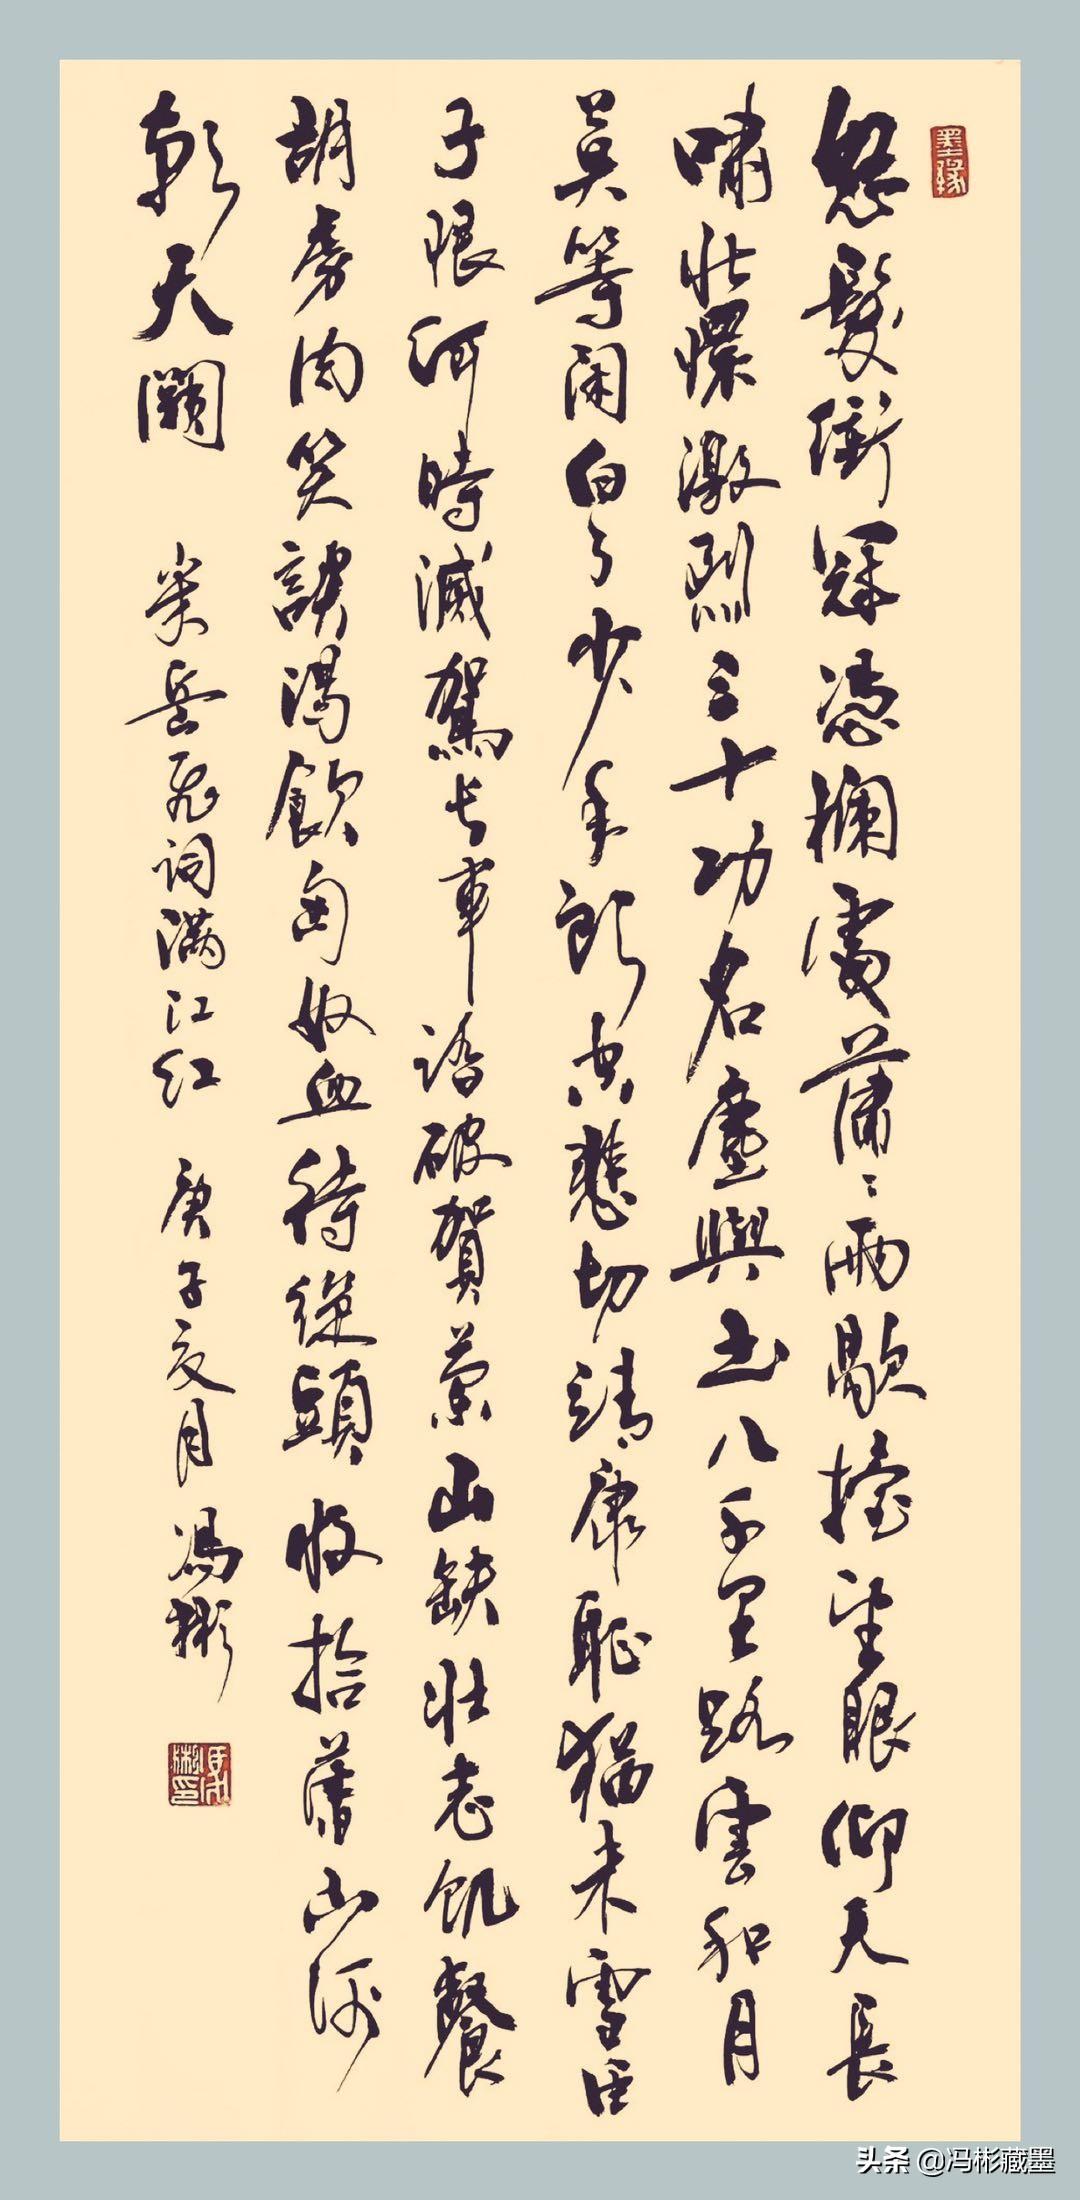 墨缘
怒髮衝冠憑欄處蕭〻雨歇擡望眼仰天長
嘯壯懷激烈三十功名塵與土八千里路雲和月
莫等闲白了少年頭空悲切靖康恥猶未雪臣
子恨何時滅駕長車踏破賀蘭山缺壯志飢餐
胡虜肉笑談渴飲匈奴血待從頭收拾舊山河
朝天闕 录岳飛词满江红 庚子夏月馮彬
馮彬印
头条 @冯彬藏墨